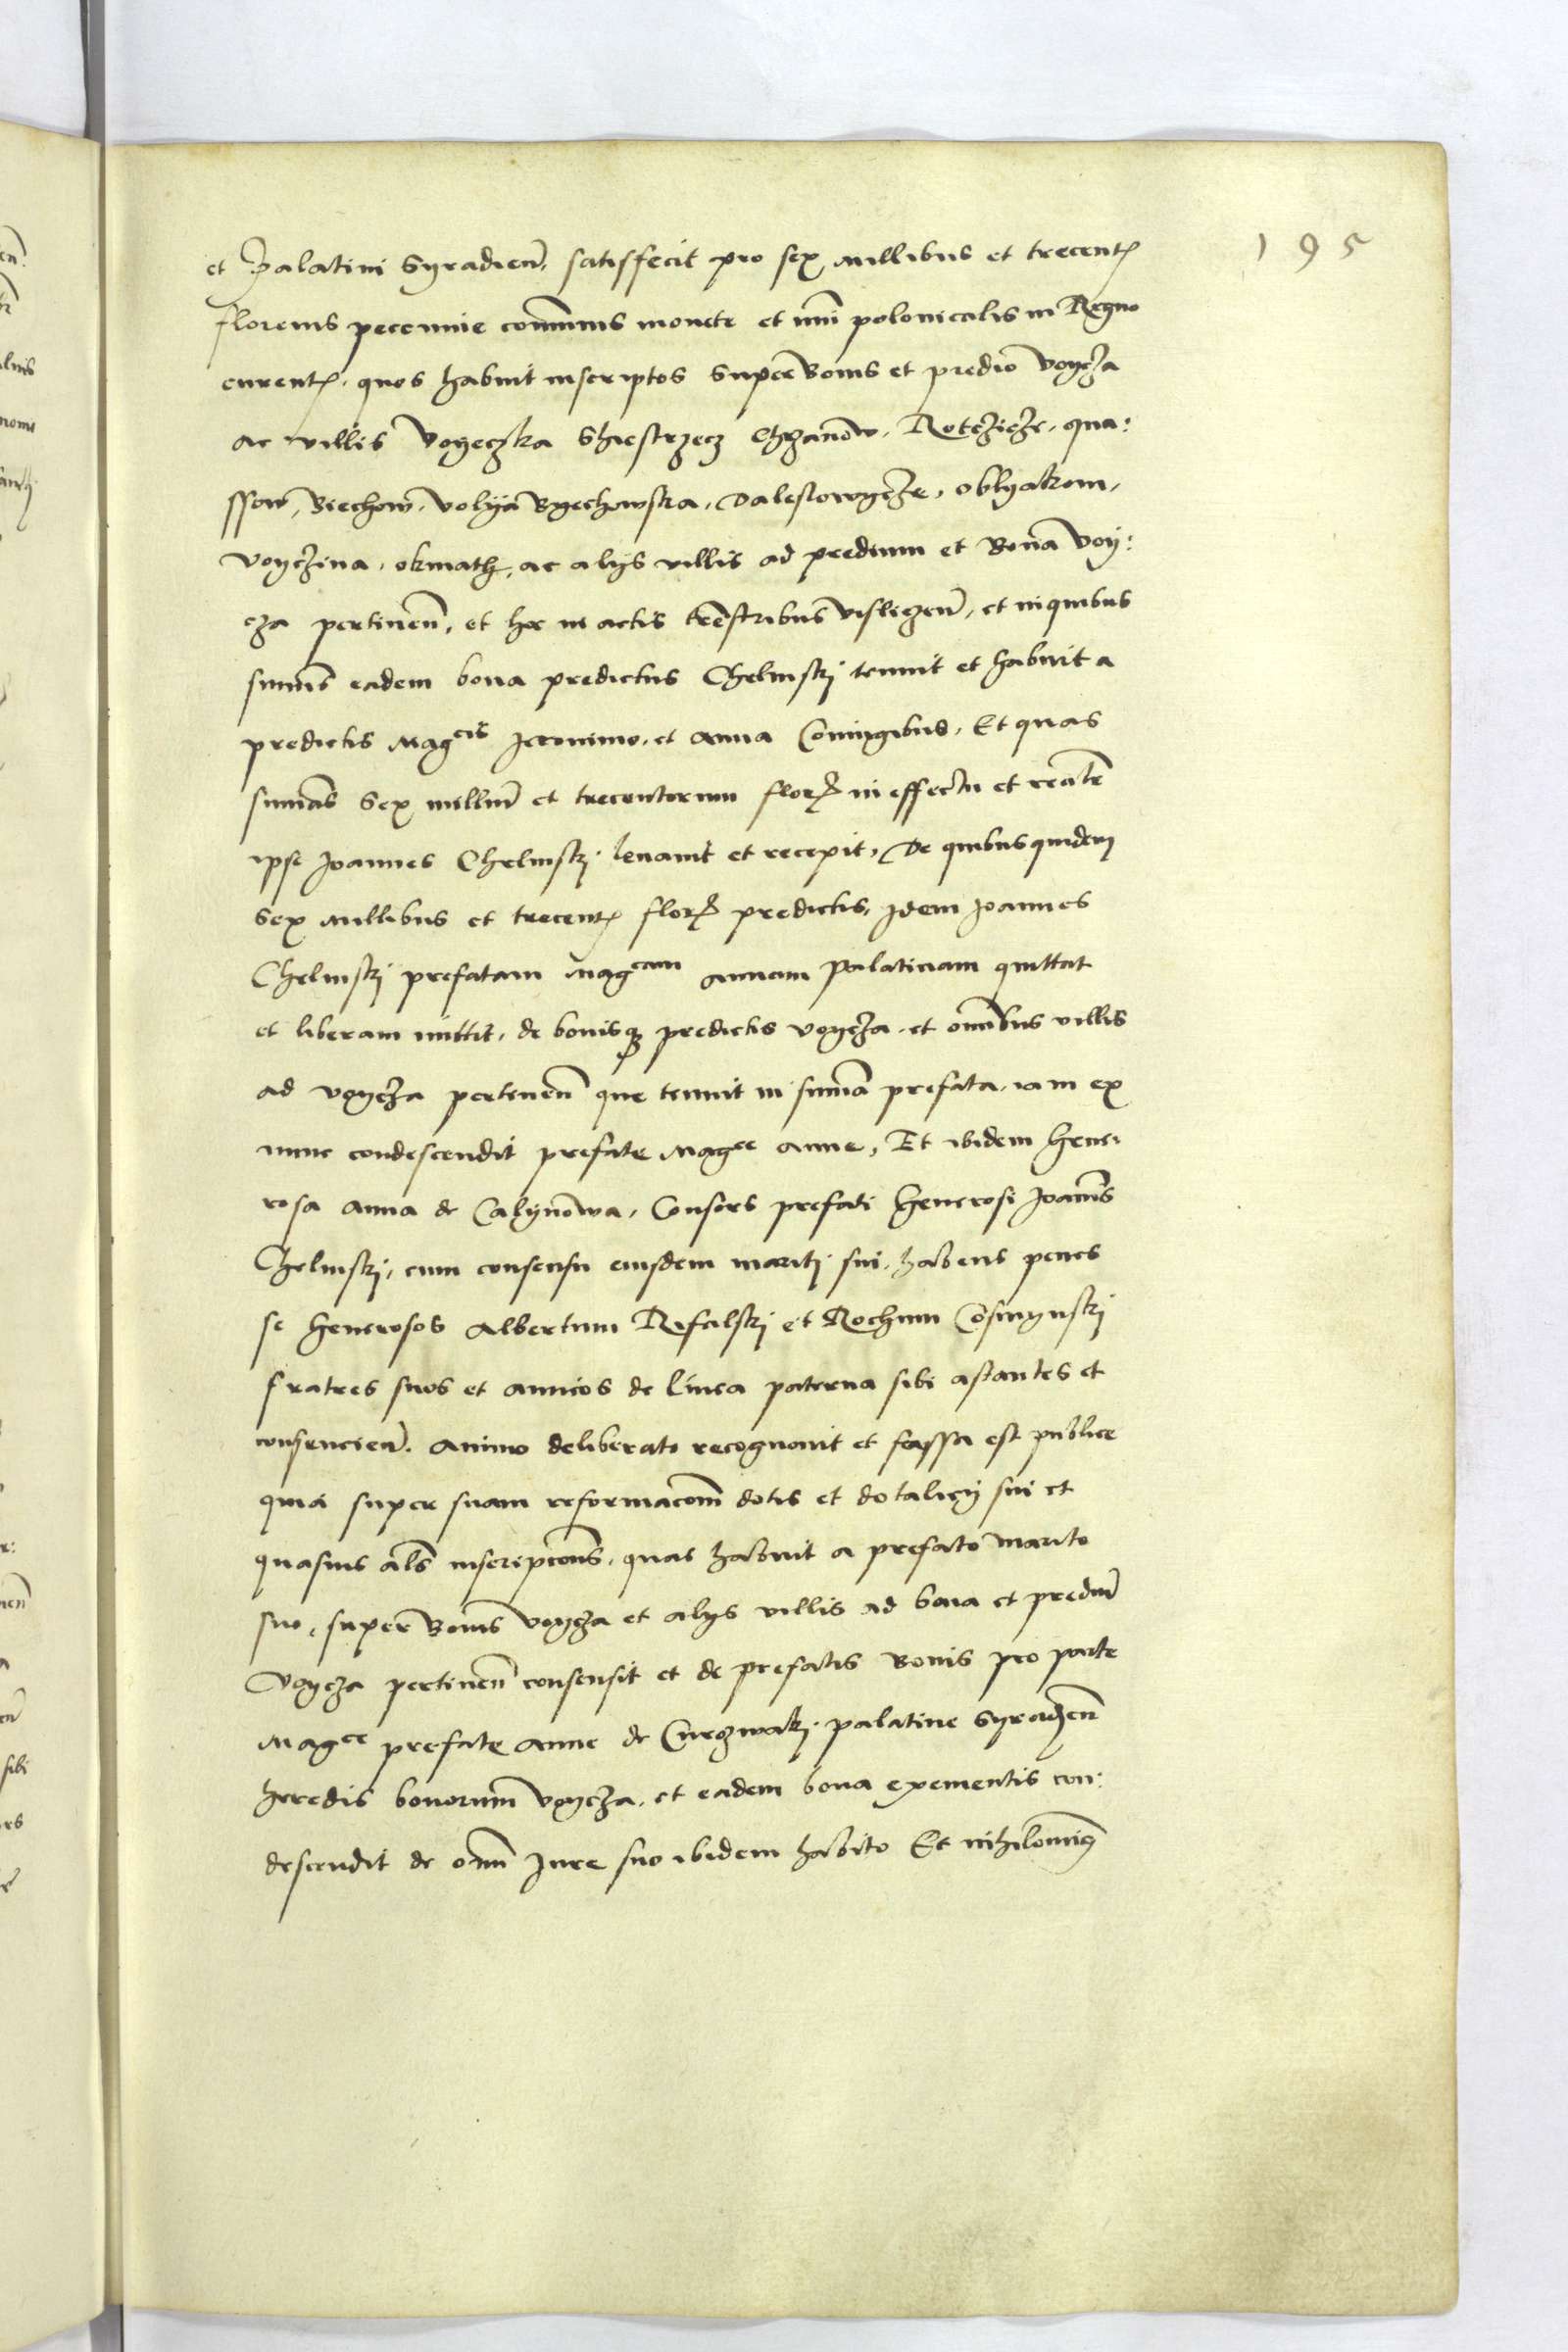 195
et Palatini Syradien̄. satisfecit pro sex millibus et trecentꝭ
florenis pecunie com̄unis monete et nūi polonicalis in Regno
currentꝭ. quos habuit inscriptos super Bonis et predio Voycza
ac villis Voyeczka Szczestrzecz Chzanow. Rotczicze. qua:
ssow, Biechow. Volya Byechowska. Daleszowycze. Oblyakom.
Voyczina. okmath. ac alys villis ad predium et Bona Voy:
cza pertinen̄. et hoc in actis terrēstribus vislizen̄. et in quibus
sum̄is eadem bona predictus Chelmski tenuit et habuit a
predictis Mag̅cis Jeronimo. et Anna Coniugibus. Et quas
sum̄as Sex milliū et trecentorum floꝝ in effectu et realr̄
ipse Joannes Chelmski. levavit et recepit. De quibus quidem
Sex millibus et trecentꝭ floꝝ predictis. Idem Joannes
Chelmski prefatam Mag̅cam Annam Palatinam quittat
et liberam mittit. de bonisqꝫ predictis voycza. et om̄ibus villis
ad voycza pertinen̄ que tenuit in sum̄a prefata. iam ex
nunc condescendit prefate Mag̅ce Anne. Et ibidem Gene:
rosa Anna de Calynowa. Consors prefati Generosi Joānis
Chelmski. cum consensu eiusdem mariti sui. habens penes
se Generosos Albertum Rafalski et Rochum Cosmynski
fratres suos et amicos de linea paterna sibi astantes et
consencien̄. Animo deliberato recognovit et fassa est publice
quia super suam reformacom̄ dotis et dotalicy sui et
quasvis al̄s inscripcōns. quas habuit a prefato marito
suo. super Bonis voycza et alys villis ad bona et prediū
Voycza pertinen̄ consensit et de prefatis Bonis pro parte
Mag̅ce prefate Anne de Curozwaki. palatine Syradien̄
heredis bonorum voycza. et eadem bona exementis con:
descendit de om̄i Jure suo ibidem habito Et nihilominꝰ